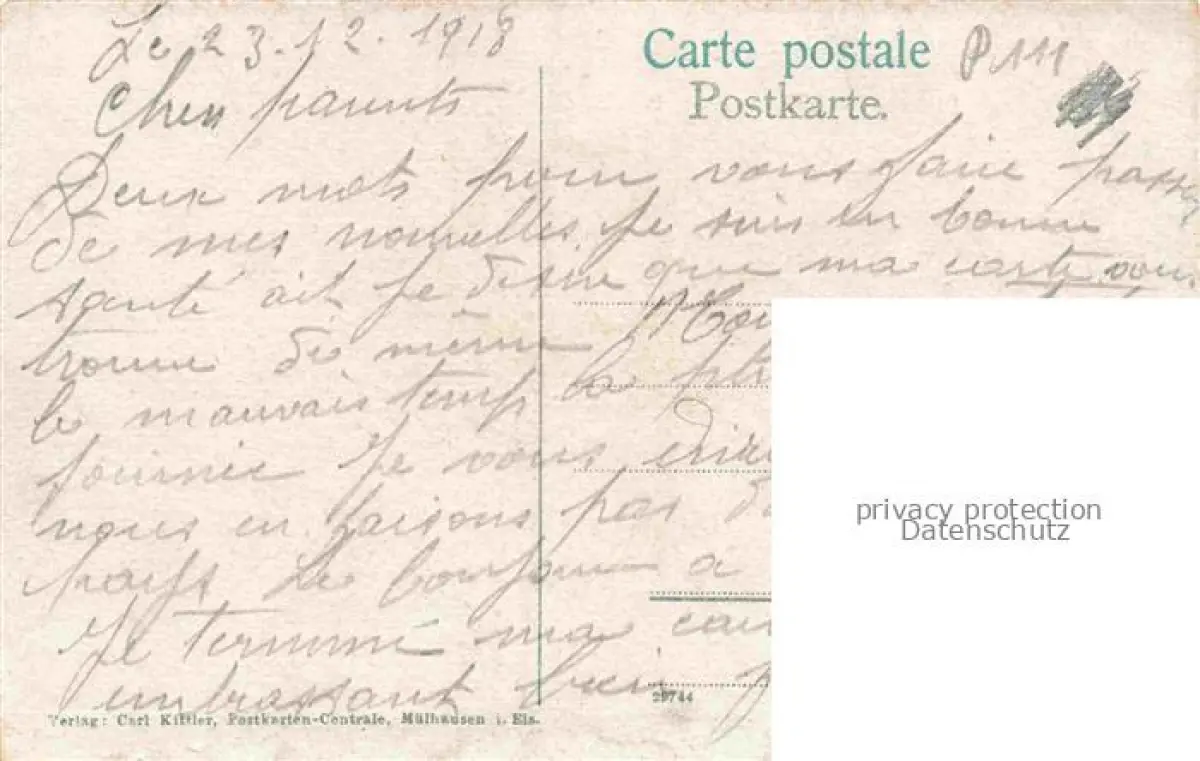 Le 23.12.1918
Carte postale
P 111
Postkarte.
Chers parents
Deux mots pour vous faire passer
de mes nouvelles. Je suis en bonne
santé ait je désire que ma carte vous
trouve de même
le mauvais temps la
journée Je vous
nous en faisons pas
Le bonjour a
Je terminé ma
embrassant bien
29744
Verlag: Carl Kistler, Postkarten-Centrale, Mülhausen i. Els.
privacy protection
Datenschutz